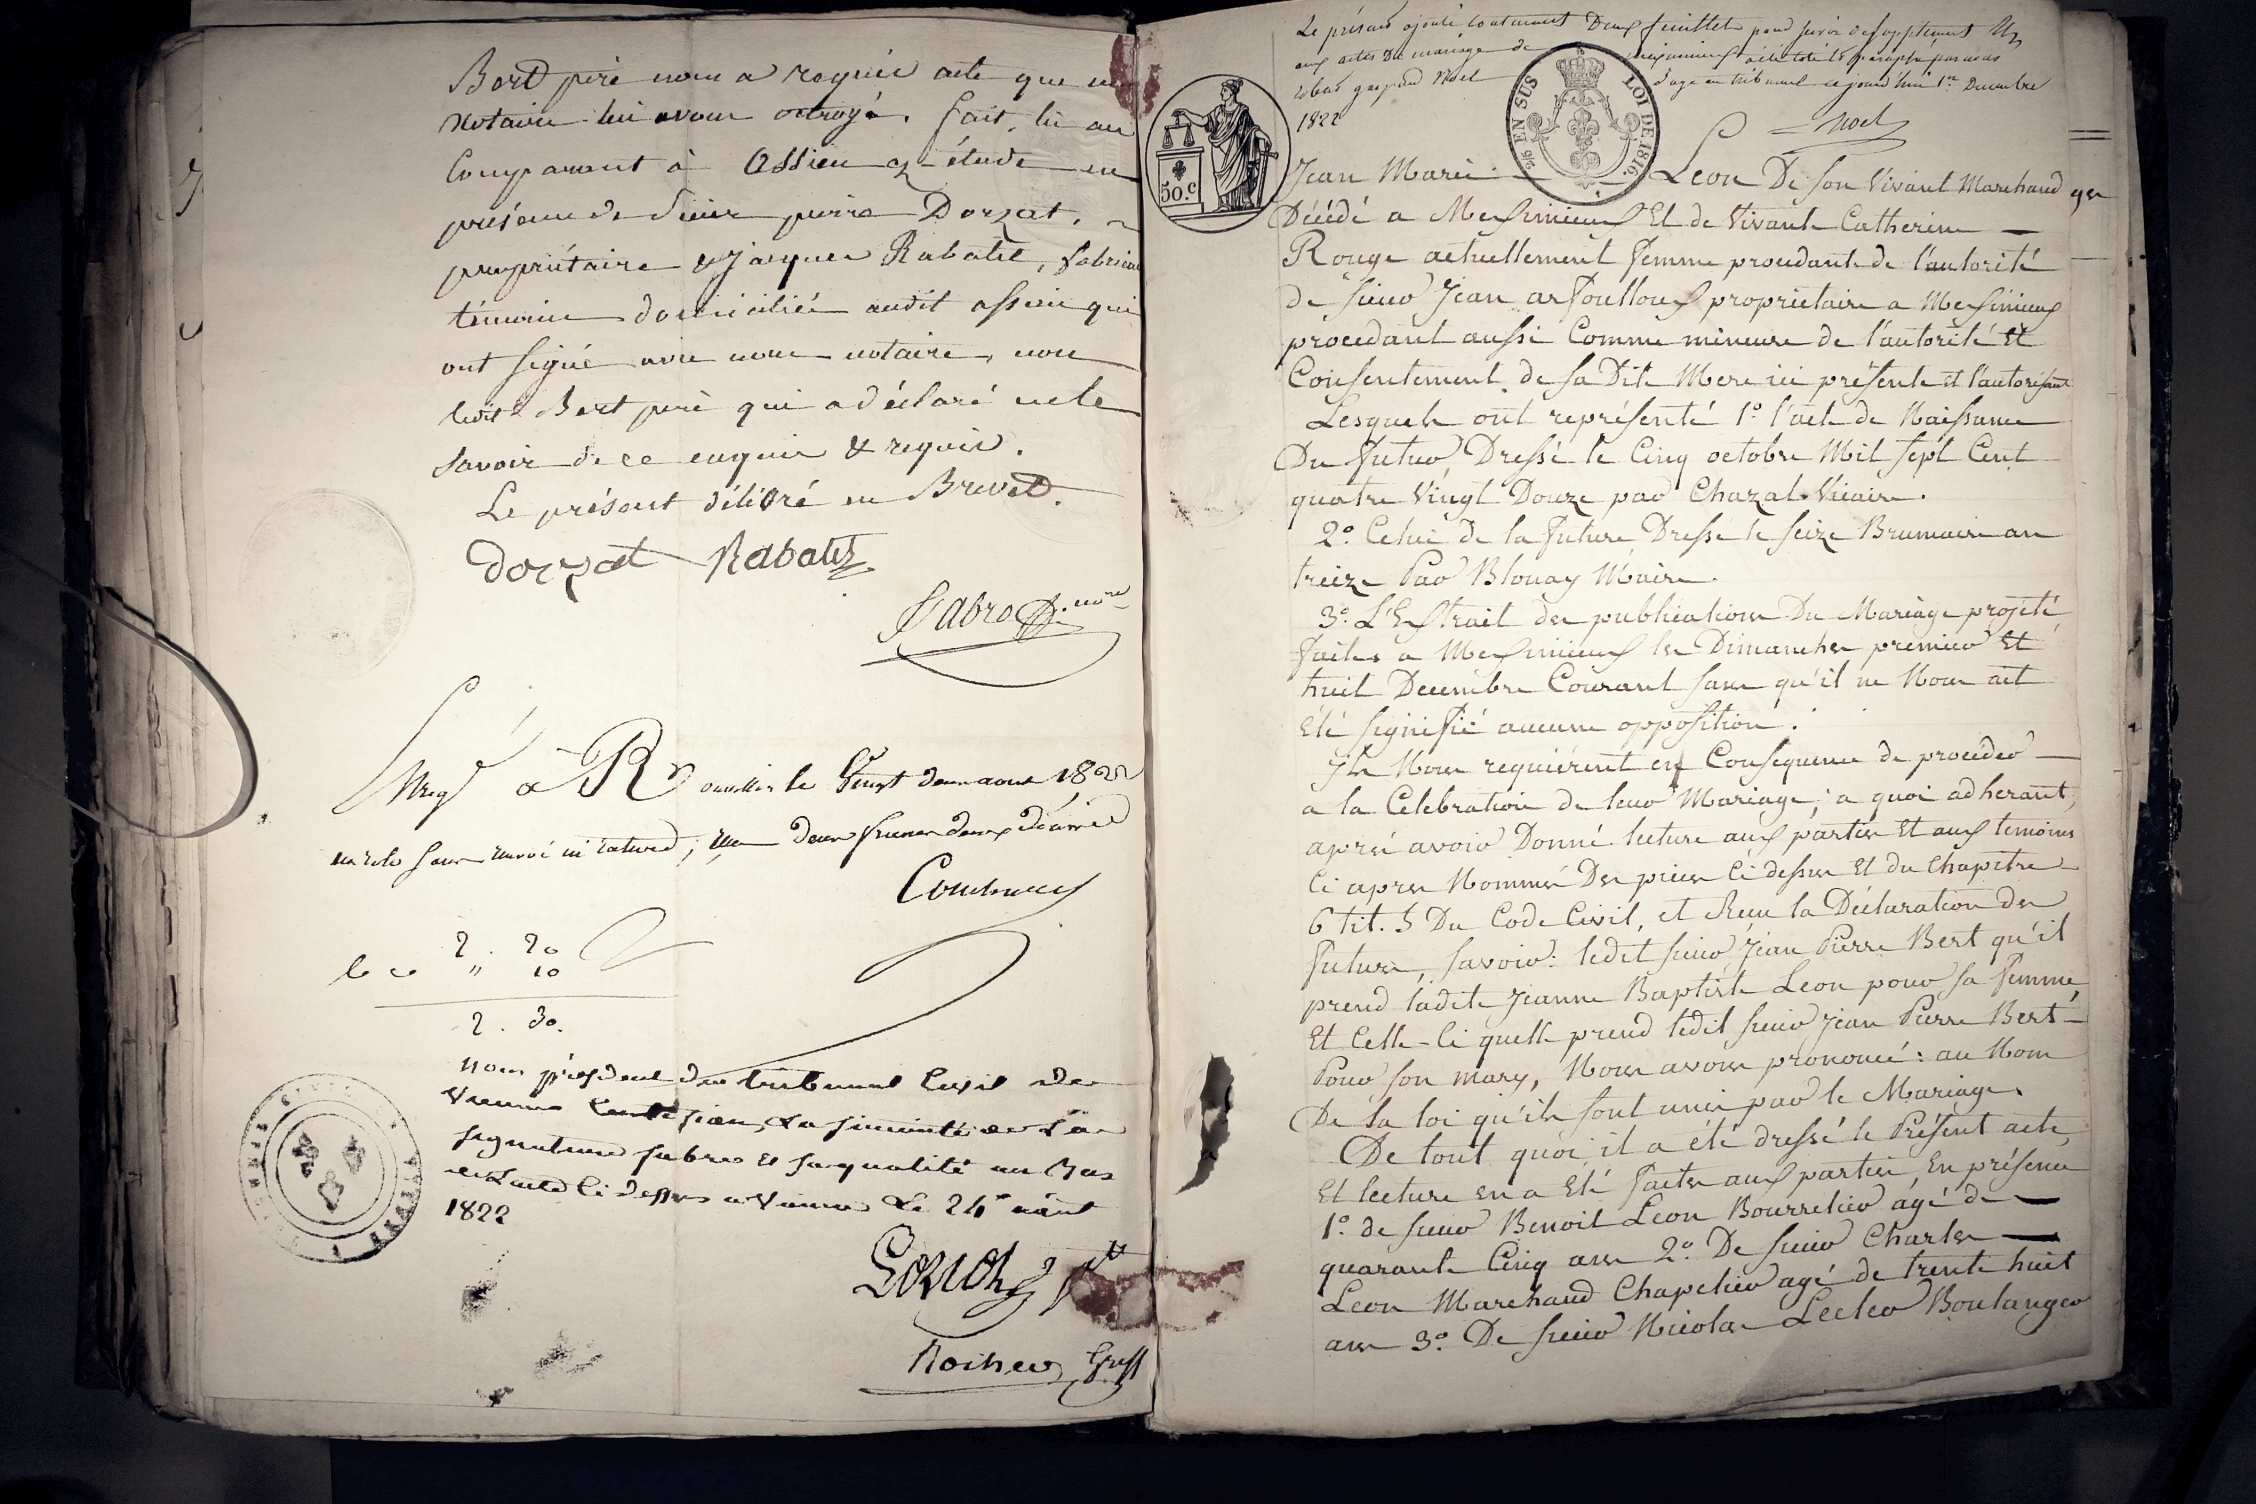 Bert père nous a requis acte que nous
notaire lui avons octroyé. fait, lu au
Comparant à Assieu en étude en
présence de Sieur pierre Dorzat,
propriétaire & Jacques Rabatel, fabricant
témoins domiciliés audit assieu qui
ont signé avec nous notaire, non
ledit Bert père qui a déclaré ne le
savoir de ce enquis & requis.
Le présent délivré en Brevet.
dorzat Rabatel
Fabre nore
Enregé à Roussillon le Vingt deux aout 1822
un rôle sans renvoi ni rature, reçu deux francs deux décimes
2. 20
" 10
2. 30.
nous président du tribunal Civil de
Vienne Certifions la sincérité de la
signature fabre et sa qualité au bas
de L'acte Ci dessus a Vienne Le 24 août
1822
Le présent ajouté contenant Deux feuillets pour servir de supplément
aux actes De mariage de
1822
d'age en tribunal ce jourd'hui 1er Decembre
Noel
50.c
26 EN SUS LOI DE 1816.
Jean Marie Leon De son Vivant Marchand
Décédé a Meximieux Et de Vivante Catherine
Rouge actuellement femme procedante de l'autorité
de sieur Jean arfoulloux proprietaire a Meximieux
procedant aussi Comme mineure de l'autorité Et
Consentement de sa Dite Mere ici présente et l'autorisant
Lesquels ont représenté 1º. l'acte de Naissance
Du futur, Dressé le Cinq octobre Mil sept Cent
quatre Vingt Douze par Chazal Vicaire.
2º. Celui de la future Dressé le seize Brumaire an
treize Par Blonay Maire.
3º. L'Extrait des publications Du Mariage projeté
faites a Meximieux les Dimanches premier Et
huit Decembre Courant sans qu'il ne Nous ait
Eté signifié aucune opposition.
Ils Nous requièrent en Consequence de procéder
a la Celebration de leur Mariage; a quoi adherant,
après avoir Donné lecture aux parties Et aux temoins
Ci apres Nommés Des pieces Ci dessus Et du Chapitre
6 tit. 5 Du Code Civil, et Reçu la Déclaration des
futurs, savoir: ledit sieur Jean Pierre Bert qu'il
prend ladite Jeanne Baptiste Leon pour sa femme,
Et Celle-Ci quelle prend ledit sieur Jean Pierre Bert
Pour son mary, Nous avons prononcé: au Nom
De la loi qu'ils sont unis par le Mariage.
De tout quoi il a été dressé le Présent acte,
Et lecture en a Eté faite aux parties En présence
1º. de sieur Benoit Leon Bourrelier agé de
quarante Cinq ans 2º. De sieur Charles
Leon Marchand Chapelier agé de trente huit
ans 3º. De sieur Nicolas Lecler Boulanger